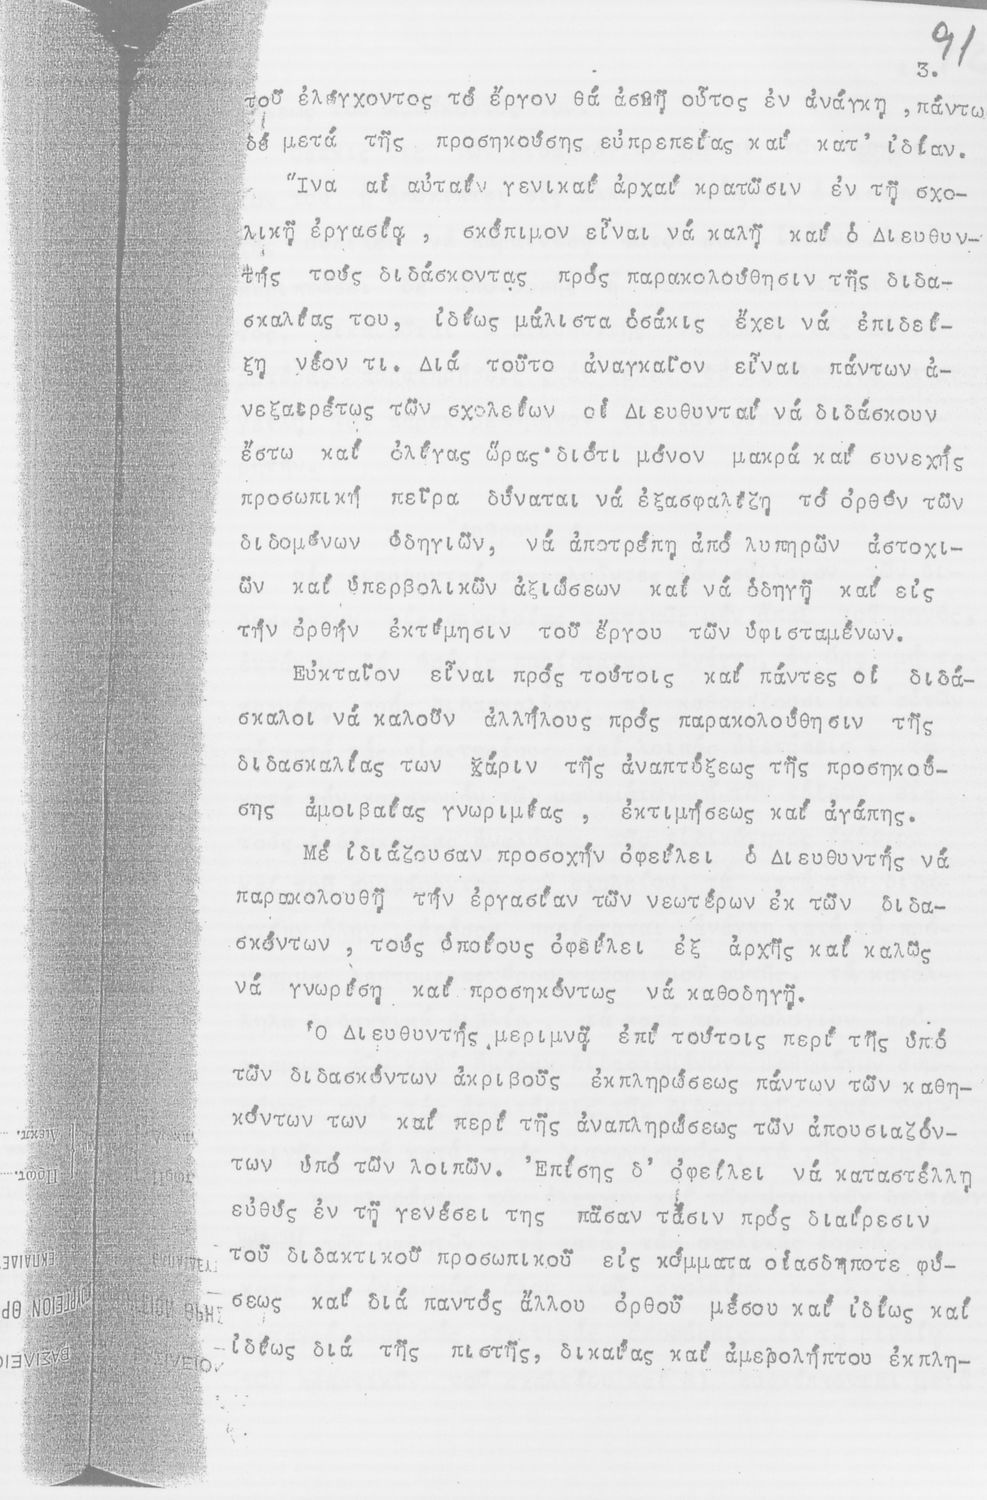 91
3.
τοῦ ἐλέγχοντος τό ἔργον θά ἀσθῇ οὗτος ἐν ἀνάγκῃ , πάντω
δέ μετά τῆς προσηκούσης εὐπρεπείας καί κατ' ἰδίαν.
Ἵνα αἱ αὐταίν γενικαί ἀρχαί κρατῶσιν ἐν τῇ σχο-
λικῇ ἐργασίᾳ , σκόπιμον εἶναι νά καλῇ καί ὁ Διευθυν-
τής τούς διδάσκοντας πρός παρακολούθησιν τῆς διδα-
σκαλίας του, ἰδίως μάλιστα ὁσάκις ἔχει νά ἐπιδεί-
ξῃ νέον τι. Διά τοῦτο ἀναγκαῖον εἶναι πάντων ἀ-
νεξαιρέτως τῶν σχολείων οἱ Διευθυνταί νά διδάσκουν
ἔστω καί ὀλίγας ὥρας· διότι μόνον μακρά καί συνεχής
προσωπική πεῖρα δύναται νά ἐξασφαλίζῃ τό ὀρθόν τῶν
διδομένων ὁδηγιῶν, νά ἀποτρέπῃ ἀπό λυπηρῶν ἀστοχι-
ῶν καί ὑπερβολικῶν ἀξιώσεων καί νά ὁδηγῇ καί εἰς
τήν ὀρθήν ἐκτίμησιν τοῦ ἔργου τῶν ὑφισταμένων.
Εὐκταῖον εἶναι πρός τούτοις καί πάντες οἱ διδά-
σκαλοι νά καλοῦν ἀλλήλους πρός παρακολούθησιν τῆς
διδασκαλίας των χάριν τῆς ἀναπτύξεως τῆς προσηκού-
σης ἀμοιβαίας γνωριμίας , ἐκτιμήσεως καί ἀγάπης.
Μέ ἰδιάζουσαν προσοχήν ὀφείλει ὁ Διευθυντής νά
παρακολουθῇ τήν ἐργασίαν τῶν νεωτέρων ἐκ τῶν διδα-
σκόντων , τούς ὁποίους ὀφείλει ἐξ ἀρχῆς καί καλῶς
νά γνωρίσῃ καί προσηκόντως νά καθοδηγῇ.
Ὁ Διευθυντής μεριμνᾷ ἐπί τούτοις περί τῆς ὑπό
τῶν διδασκόντων ἀκριβοῦς ἐκπληρώσεως πάντων τῶν καθη-
κόντων των καί περί τῆς ἀναπληρώσεως τῶν ἀπουσιαζόν-
των ὑπό τῶν λοιπῶν. Ἐπίσης δ' ὀφείλει νά καταστέλλῃ
εὐθύς ἐν τῇ γενέσει της πᾶσαν τάσιν πρός διαίρεσιν
τοῦ διδακτικοῦ προσωπικοῦ εἰς κόμματα οἱασδήποτε φύ-
σεως καί διά παντός ἄλλου ὀρθοῦ μέσου καί ἰδίως καί
ἰδίως διά τῆς πιστῆς, δικαίας καί ἀμερολήπτου ἐκπλη-